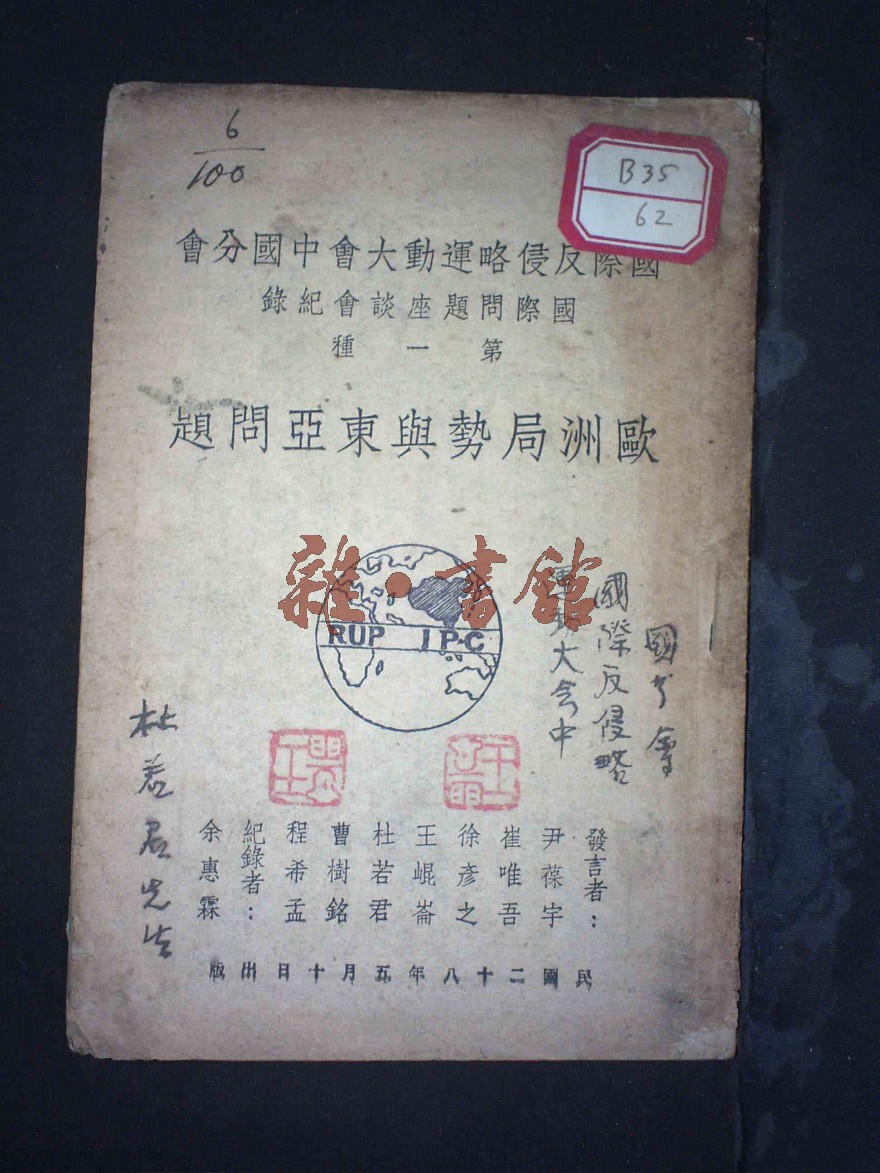 6
100
B35
62
國際反侵略運動大會中國分會
國際問題座談會紀錄
第一種
歐洲局勢與東亞問題
雜·書館
RUP IPC
國際反侵略
運動大会中
國分會
杜若君先生
發言者：
尹葆宇
崔唯吾
徐彥之
王崐崙
杜若君
曹樹銘
程希孟
紀錄者：
余惠霖
民國二十八年五月十日出版